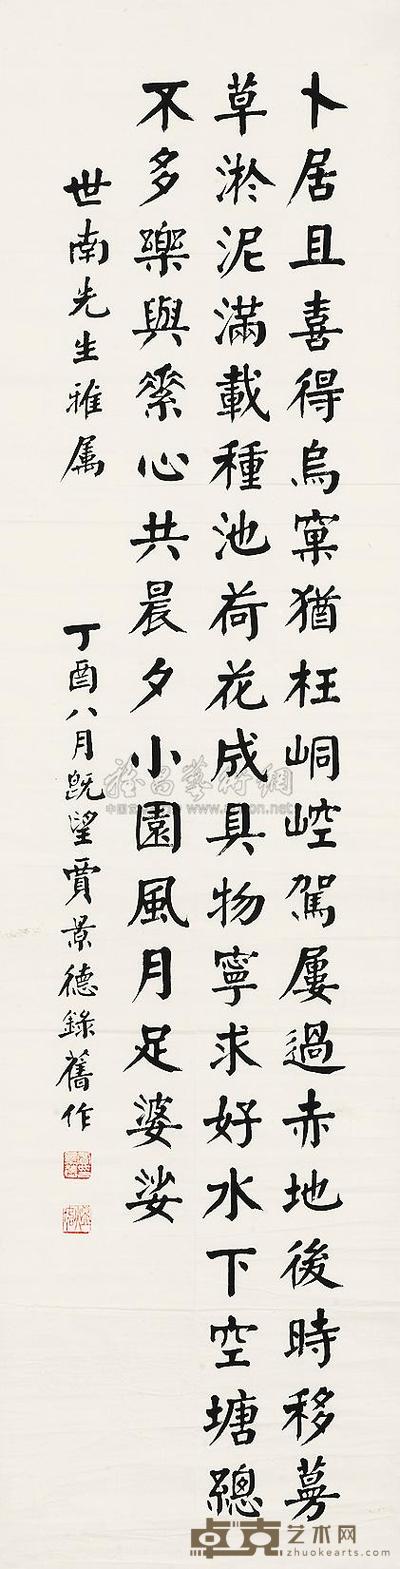 卜居且喜得烏窠猶枉峒崆駕屢過赤地後時移蒡
草淤泥滿載種池荷花成具物寧求好水下空塘總
不多樂與素心共晨夕小園風月足婆娑
世南先生雅属
丁酉八月既望賈景德錄舊作
雅昌藝術網
卓克艺术网
zhuokearts.com